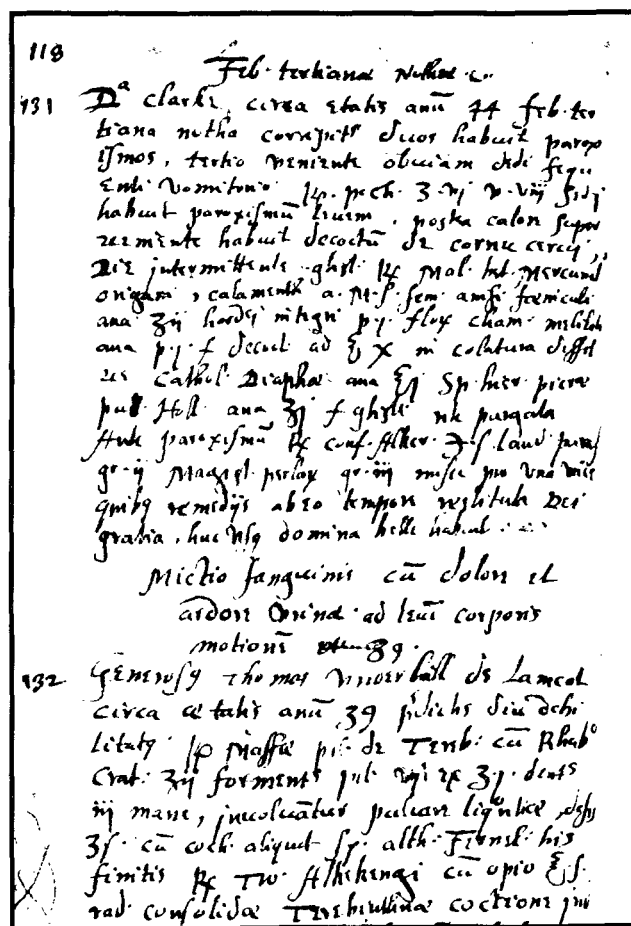 118
Feb. tertiana notha
131 Da Clarke, circa etatis anū 44 feb. ter
tiana notha corripit duos habuit parox
ismos, tertio veniente obviam dedi sequ
enti vomitorio
habuit paroxismū levem, postea calore super
veniente habuit decoctū de cornu cervi,
Die intermittente ghyst. ℞ Mal. bet. Mercurial
origani, calamenth a. M. s. sem. anisi fœniculi
ana ʒij hordej integri p.j. flox cham. melilot
ana p.j. f decoct ad ℥ X in colatura dissol
ves Cathol. Diaphœ ana ℥j Sp. hier. picræ
pul. Hell. ana ʒj f ghyst
Ante paroxismū ℞ conf. Alker. ʒ.s. laud.
gr. ij Magist. perlox gr. iij misce pro una vice
quibq remedijs ab eo tempore restituta Dei
gratia, huc usq domina belle habuit
Mictio sanguinis cū dolore et
ardore Urinæ ad levē corporis
motionē 39.
132 Generosq Thomas Underhill de Lamcot
circa ætatis anū 39 diu debi
litatq ℞ Massæ pil. de Tereb. cū Rhab
Crat. ʒij forments pil. vij ex ʒj. dentr
iij mane, involvātur pulvere liqritiæ,
ʒs. cū coch. aliquot sy. alth. Fernel. his
finitis ℞ Tro. Alkekengi cū opio ℥.s.
rad. consolidæ Terebentinæ coctione